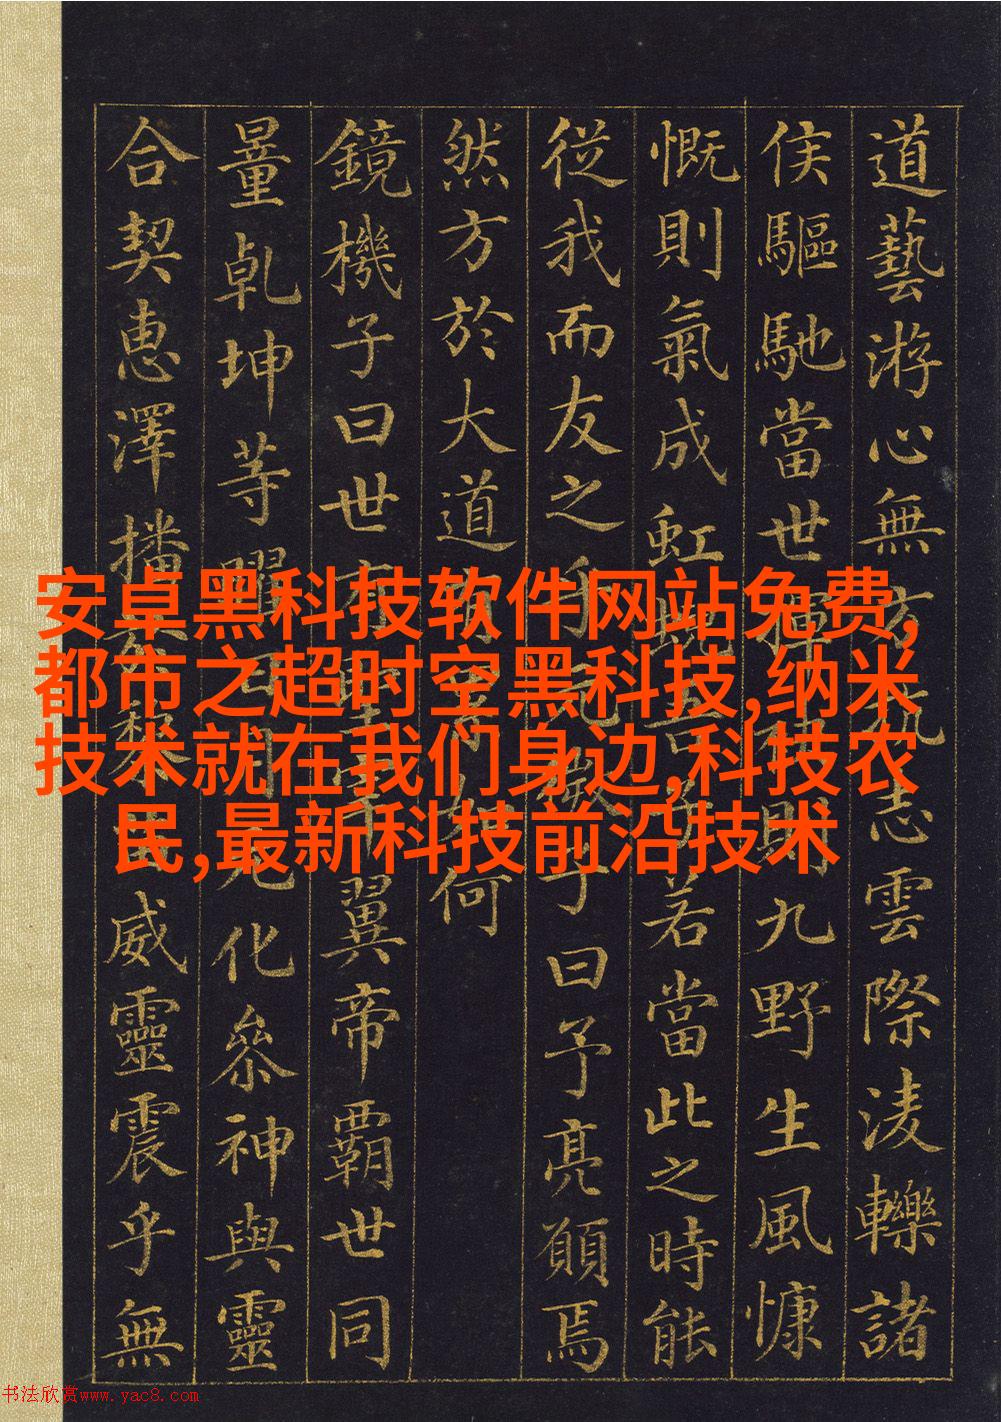 安卓黑科技软件网站免费,
都市之超时空黑科技,纳米
技术就在我们身边,科技农
民,最新科技前沿技术
道藝游心無方抗志雲際淩轢諸
侯驅馳當世揮袂則九野生風慷
慨則氣成虹蜺吾子若當此之時能
從我而友之乎玄微子曰予亮願焉
然方於大道有累如何
鏡機子曰世有聖宰翼帝霸世同
量乾坤等曜日月玄化參神與靈
合契惠澤播於黎苗威靈震乎無
书法欣赏www.yac8.com